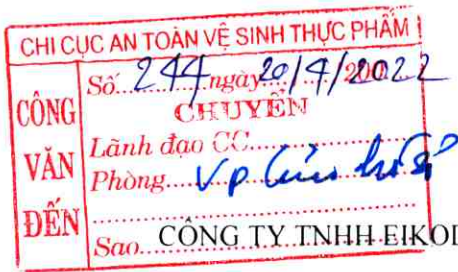 CHI CỤC AN TOÀN VỆ SINH THỰC PHẨM
CÔNG VĂN ĐẾN
Số 244 ngày 20/4/2022
CHUYỂN
Lãnh đạo CC
Phòng VP
Sao
CÔNG TY TNHH EIKO